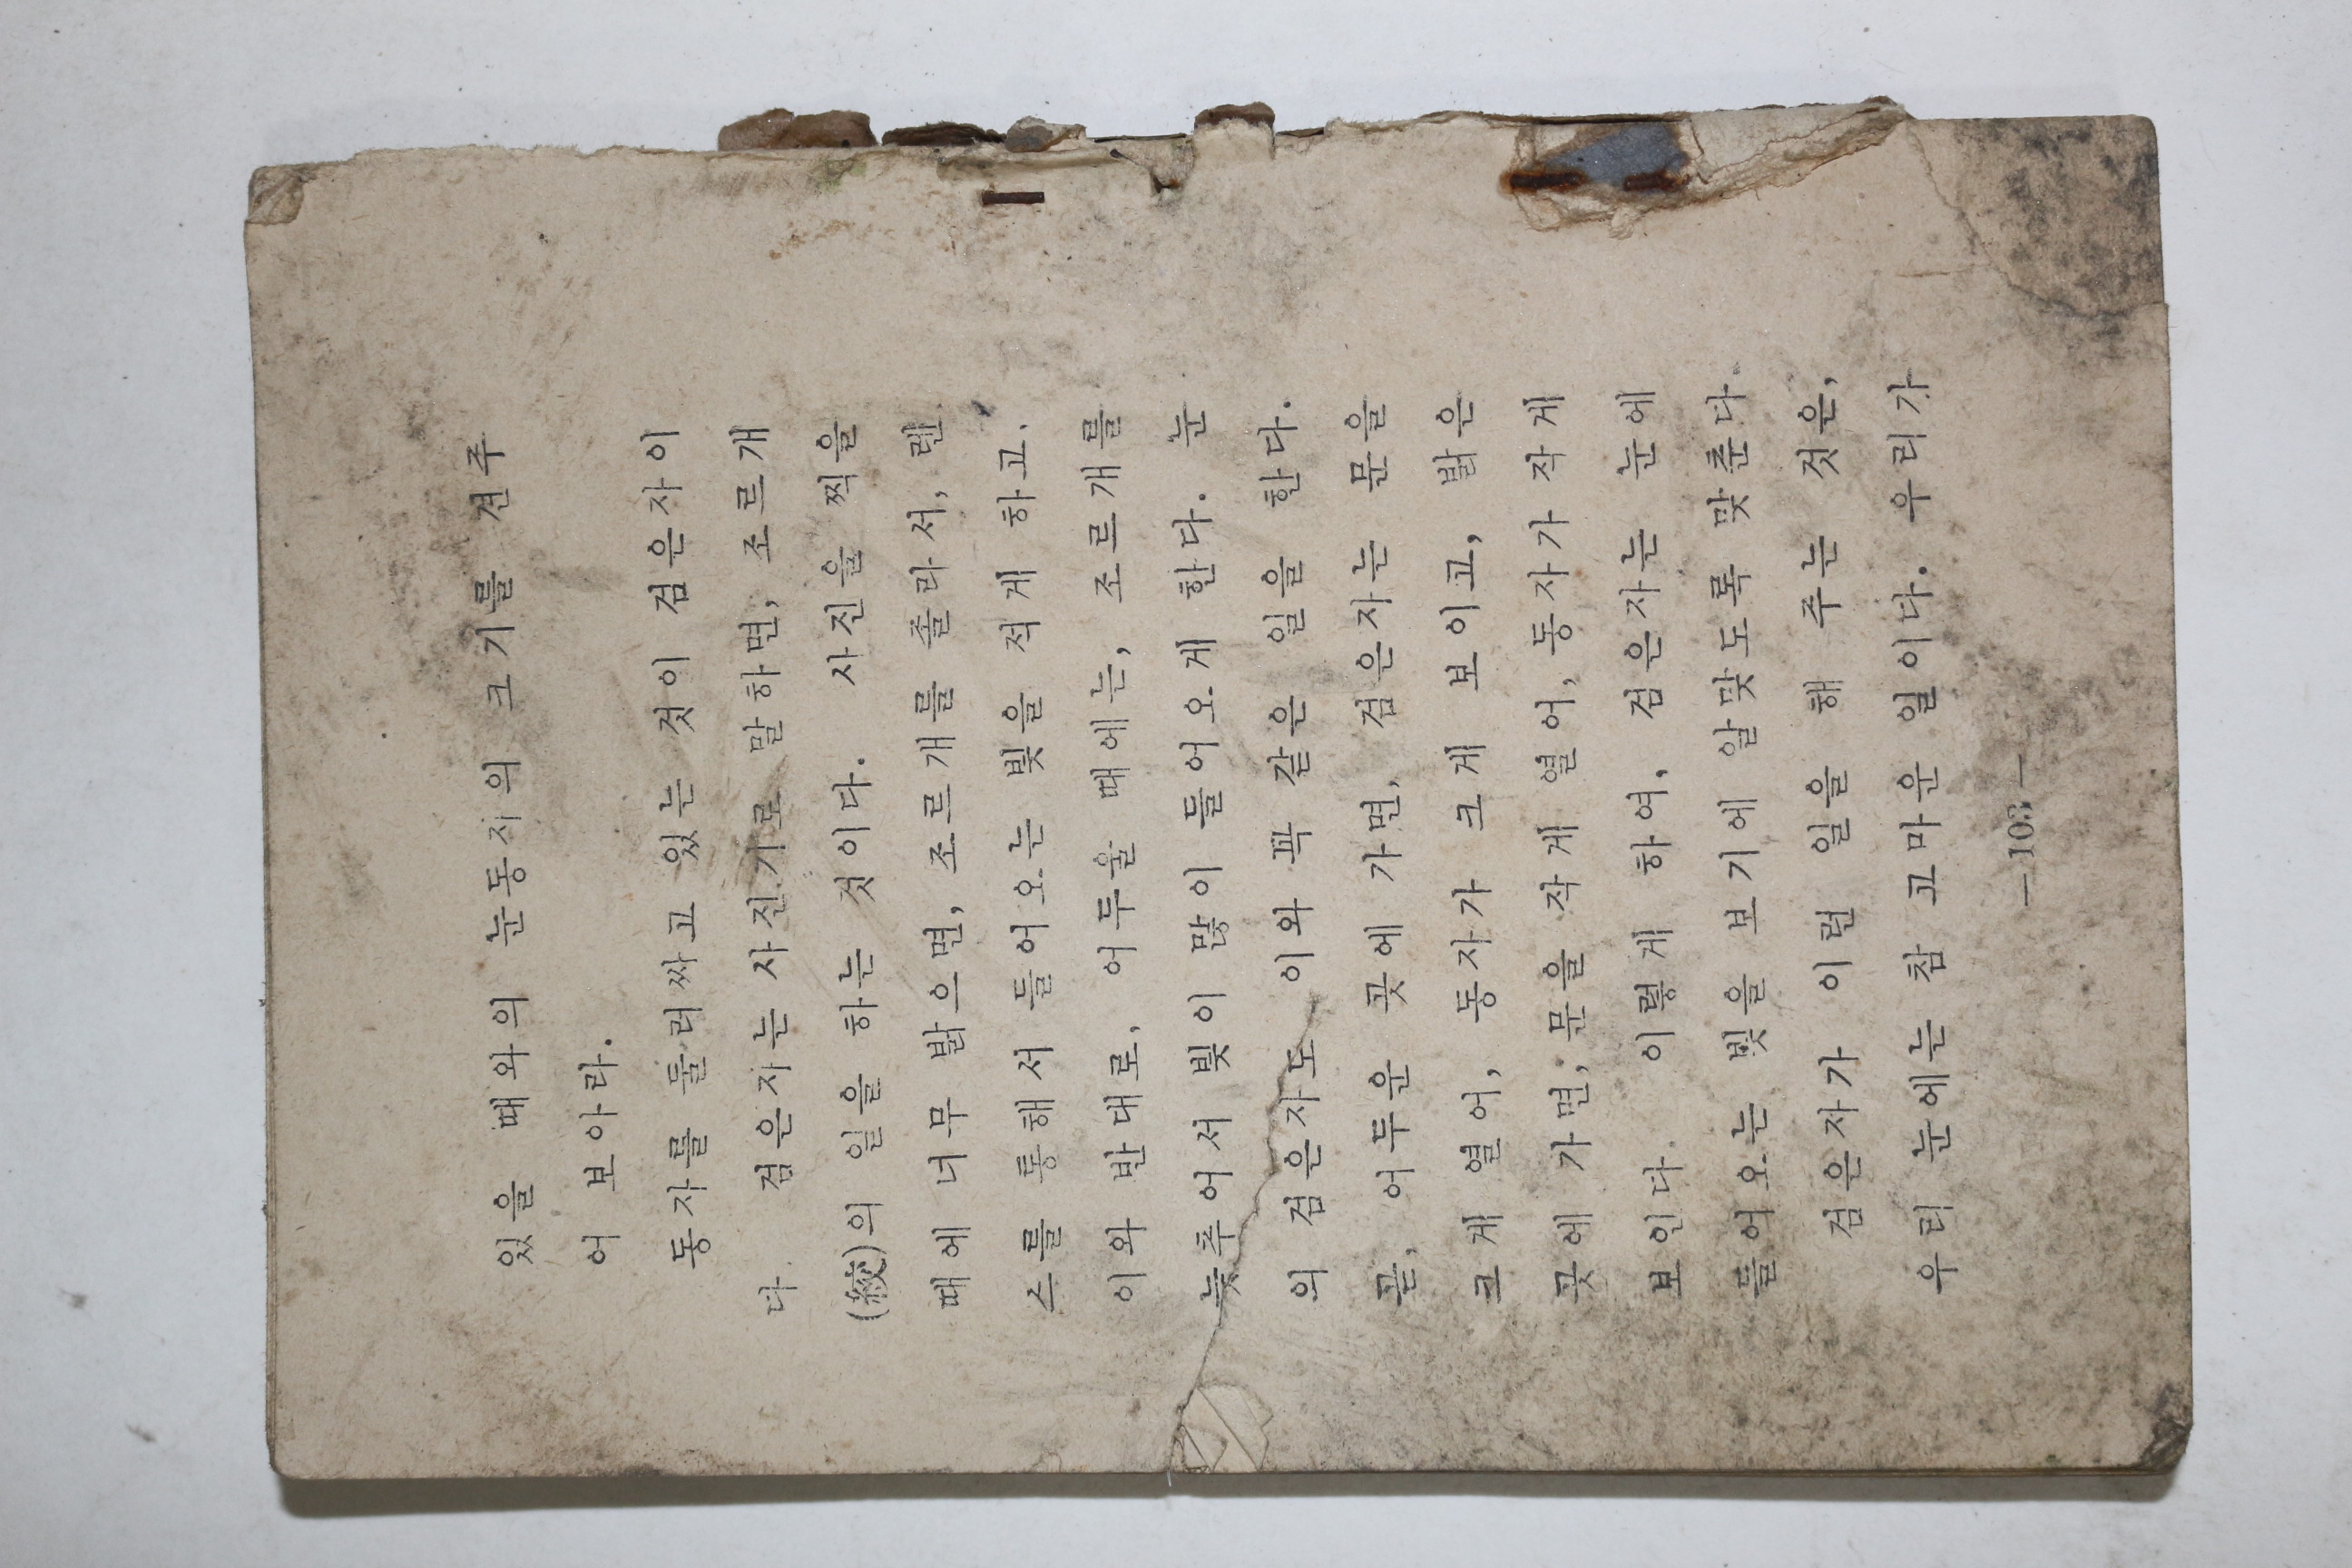 있을 때와의 눈동자의 크기를 견주
어 보아라.
동자를 둘러싸고 있는 것이 검은자이
다. 검은자는 사진기로 말하면, 조르개
(絞)의 일을 하는 것이다. 사진을 찍을
때에 너무 밝으면, 조르개를 졸라서, 렌
스를 통해서 들어오는 빛을 적게 하고.
이와 반대로, 어두울 때에는, 조르개를
늦추어서 빛이 많이 들어오게 한다. 눈
의 검은자도 이와 꼭 같은 일을 한다.
곧, 어두운 곳에 가면, 검은자는 문을
크게 열어, 동자가 크게 보이고, 밝은
곳에 가면, 문을 작게 열어, 동자가 작게
보인다. 이렇게 하여, 검은자는 눈에
들어오는 빛을 보기에 알맞도록 맞춘다.
검은자가 이런 일을 해 주는 것은,
우리 눈에는 참 고마운 일이다. 우리가
—103—